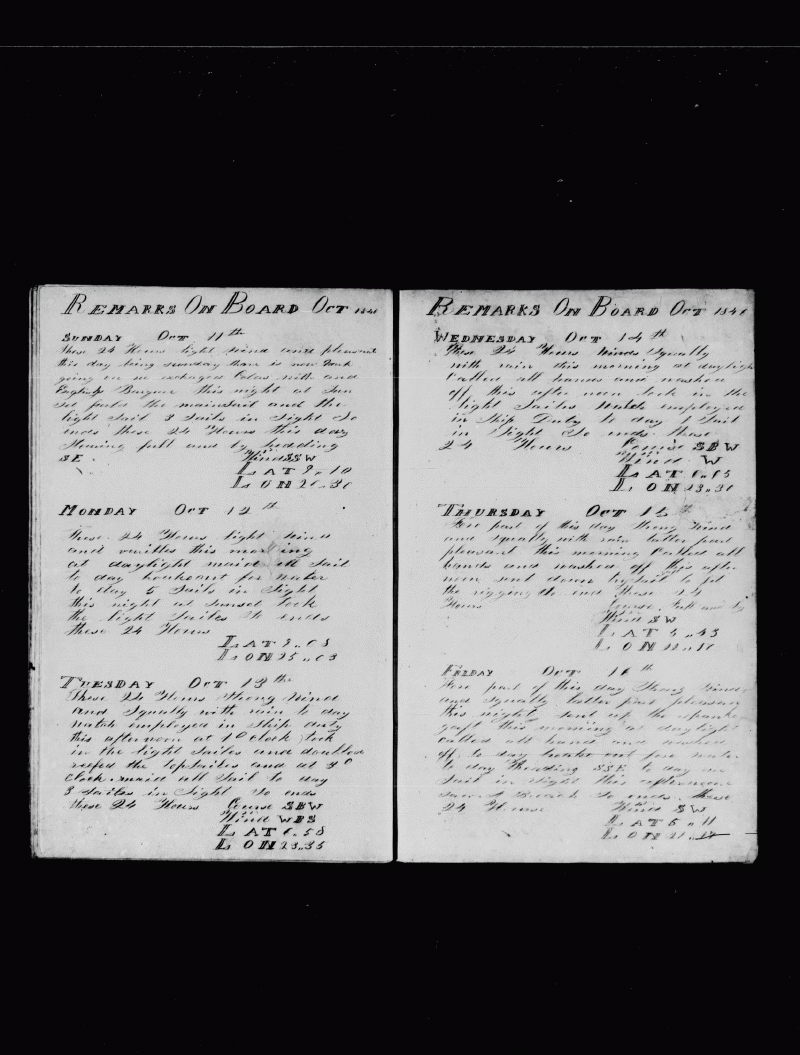 REMARKS ON BOARD OCT 1841
SUNDAY OCT 11th
these 24 Hours light wind and pleasant
this day being sunday thare is now work
going on we exchaged Colas with and
English Barque this night at Sun
set furld the mainsail and the
light Sail 3 Sails in Sight So
ends these 24 Hours this day
Stearing full and by headding
SE Wind SSW
LAT 9,,10
LON 26,,30
MONDAY OCT 12th
these 24 Hours light wind
and this morning
at daylight maid all Sail
to day for water
to day 5 Sails in Sight
this night at sunset took
the light Sailes So ends
these 24 Hours
LAT 9,,08
LON 25,,03
TUESDAY OCT 13th
these 24 Hours Strong wind
and Squally with rain to day
watch employed in Ship duty
this afternoon at 1 Oclock took
in the light Sailes and doubleo
reefed the topsailes and at 3 O
Clock maid all Sail to day
3 Sailes in Sight So ends
these 24 Hours Course SBW
Wind WBS
LAT 6,,58
LON 23,,35
REMARKS ON BOARD OCT 1841
WEDNESDAY OCT 14th
these 24 Hours winds Squally
with rain this morning at daylight
Called all hands and washed
off this after noon took in the
light Sailes Watch employed
in Ship Duty to day 1 Sail
in Sight So ends these
24 Hours Course SBW
Wind W
LAT 6,,05
LON 23,,30
THURSDAY OCT 15th
Fore part of this day Strong wind
and Squally with rain latter part
pleasant this morning Called all
hands and washed off this after
noon sent down trysail to fit
the rigging So end these 24
Hours Course Full and by
Wind SW
LAT 5,,43
LON 22,,10
FRIDAY OCT 16th
Fore part of this day Strong wind
and Squally latter part pleasan
this night sent up the spanke
gaft this morning at daylight
called all hand and washed
off to day broke out fore water
to day Headding SSE to day one
Sail in Sight this afternoon
So ends these
24 Hours Wind SW
LAT 5,,11
LON 21,,18